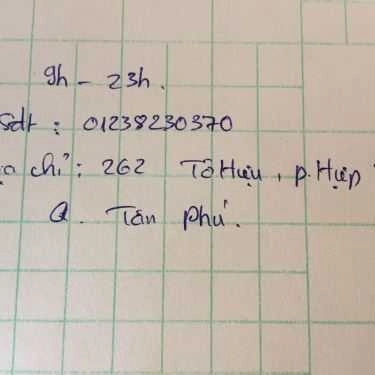 9h - 23h.
sđt : 01238230370
chỉ : 262 Tô Hiệu, p. Hiệp
Q. Tân Phú.